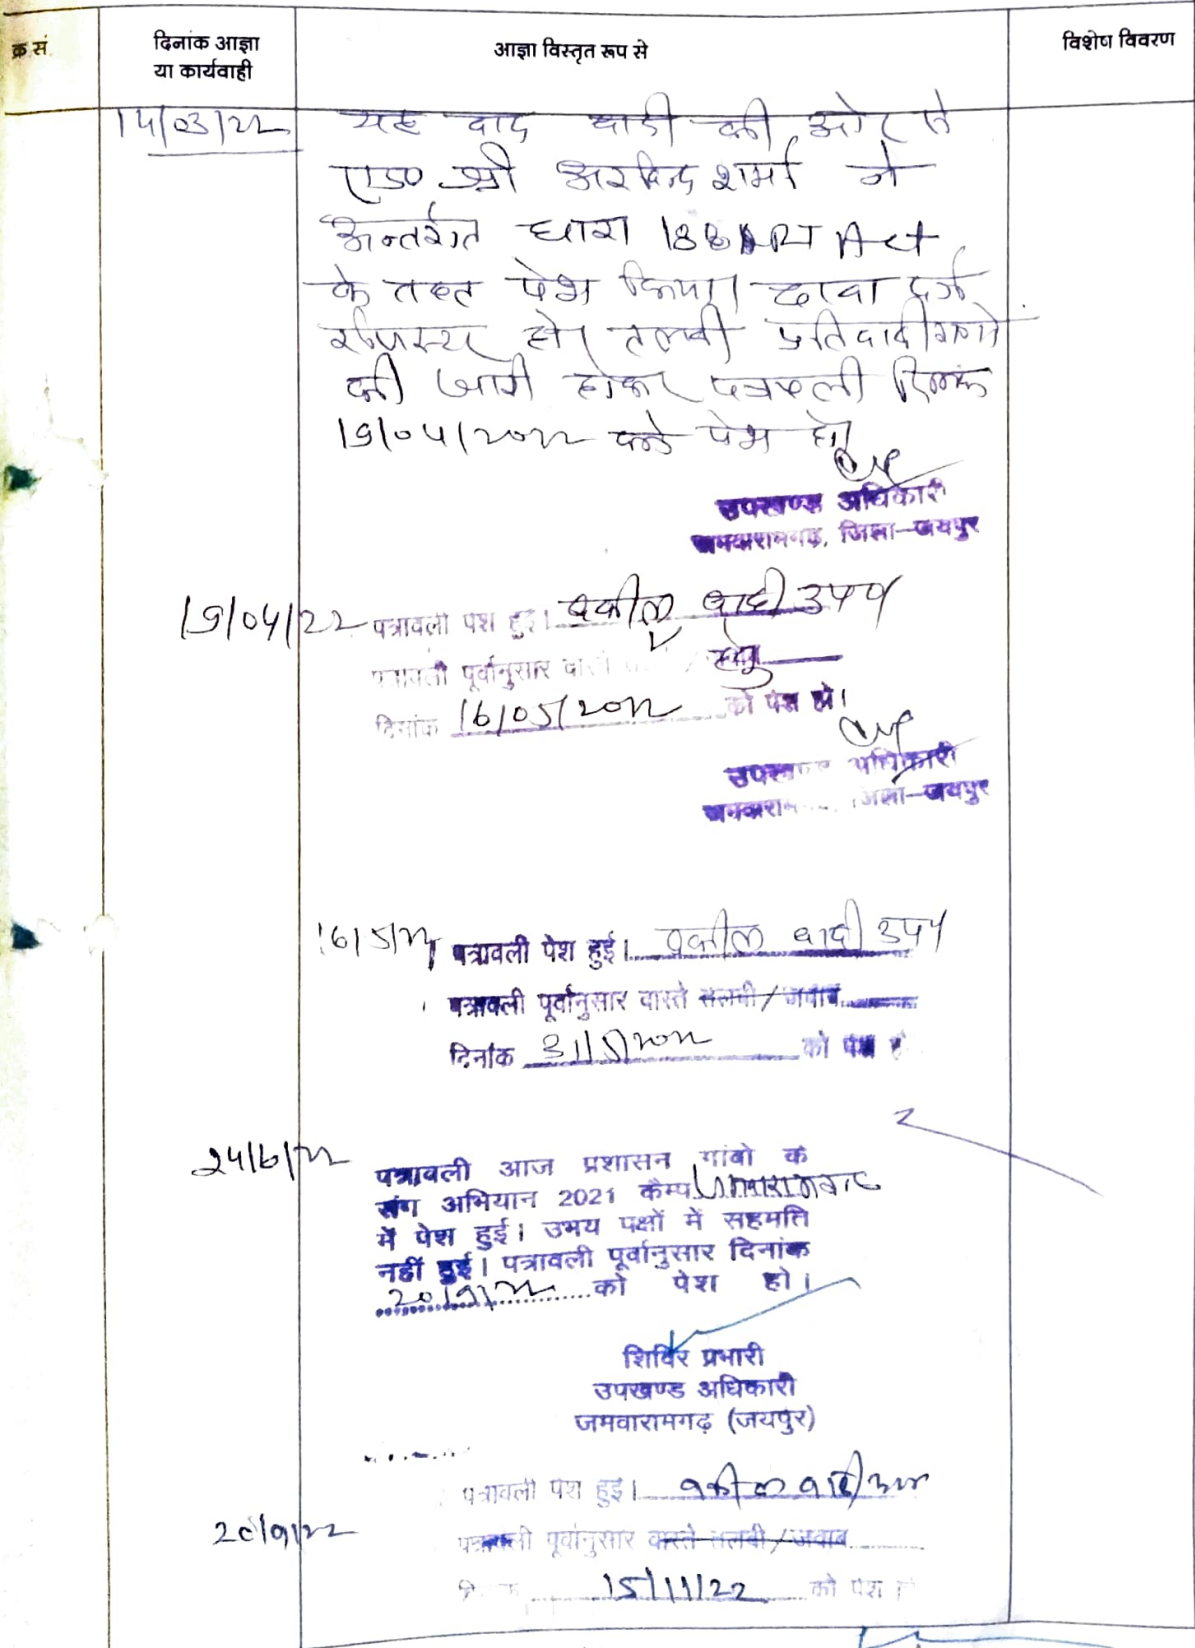 क्र सं.
दिनांक आज्ञा
या कार्यवाही
आज्ञा विस्तृत रूप से
विशेष विवरण
14/03/22 यह वाद वादी की ओर से
एड० श्री अरविन्द शर्मा ने
अन्तर्गत धारा 188 RT Act
के तहत पेश किया। दावा दर्ज
रजिस्टर हो। तलबी प्रतिवादीगणो
की जारी होकर पत्रावली दिनांक
19/04/2022 को पेश हो।
उपखण्ड अधिकारी
जमवारामगढ़, जिला-जयपुर
19/04/22 पत्रावली पेश हुई। वकील वादी उप०
पत्रावली पूर्वानुसार वास्ते
दिनांक 16/05/2022 को पेश हो।
उपखण्ड अधिकारी
जमवाराम जिला-जयपुर
16/5/22 पत्रावली पेश हुई। वकील वादी उप०
पत्रावली पूर्वानुसार वास्ते तलबी/जवाब
दिनांक 31/5/2022 को पेश ह
24/6/22 पत्रावली आज प्रशासन गांवो के
संग अभियान 2021 कैम्प जमवारामगढ़
में पेश हुई। उभय पक्षों में सहमति
नहीं हुई। पत्रावली पूर्वानुसार दिनांक
20/9/22 को पेश हो।
शिविर प्रभारी
उपखण्ड अधिकारी
जमवारामगढ़ (जयपुर)
पत्रावली पेश हुई। वकील वादी उप०
20/9/22 पत्रावली पूर्वानुसार वास्ते तलबी/जवाब
15/11/22 को पेश